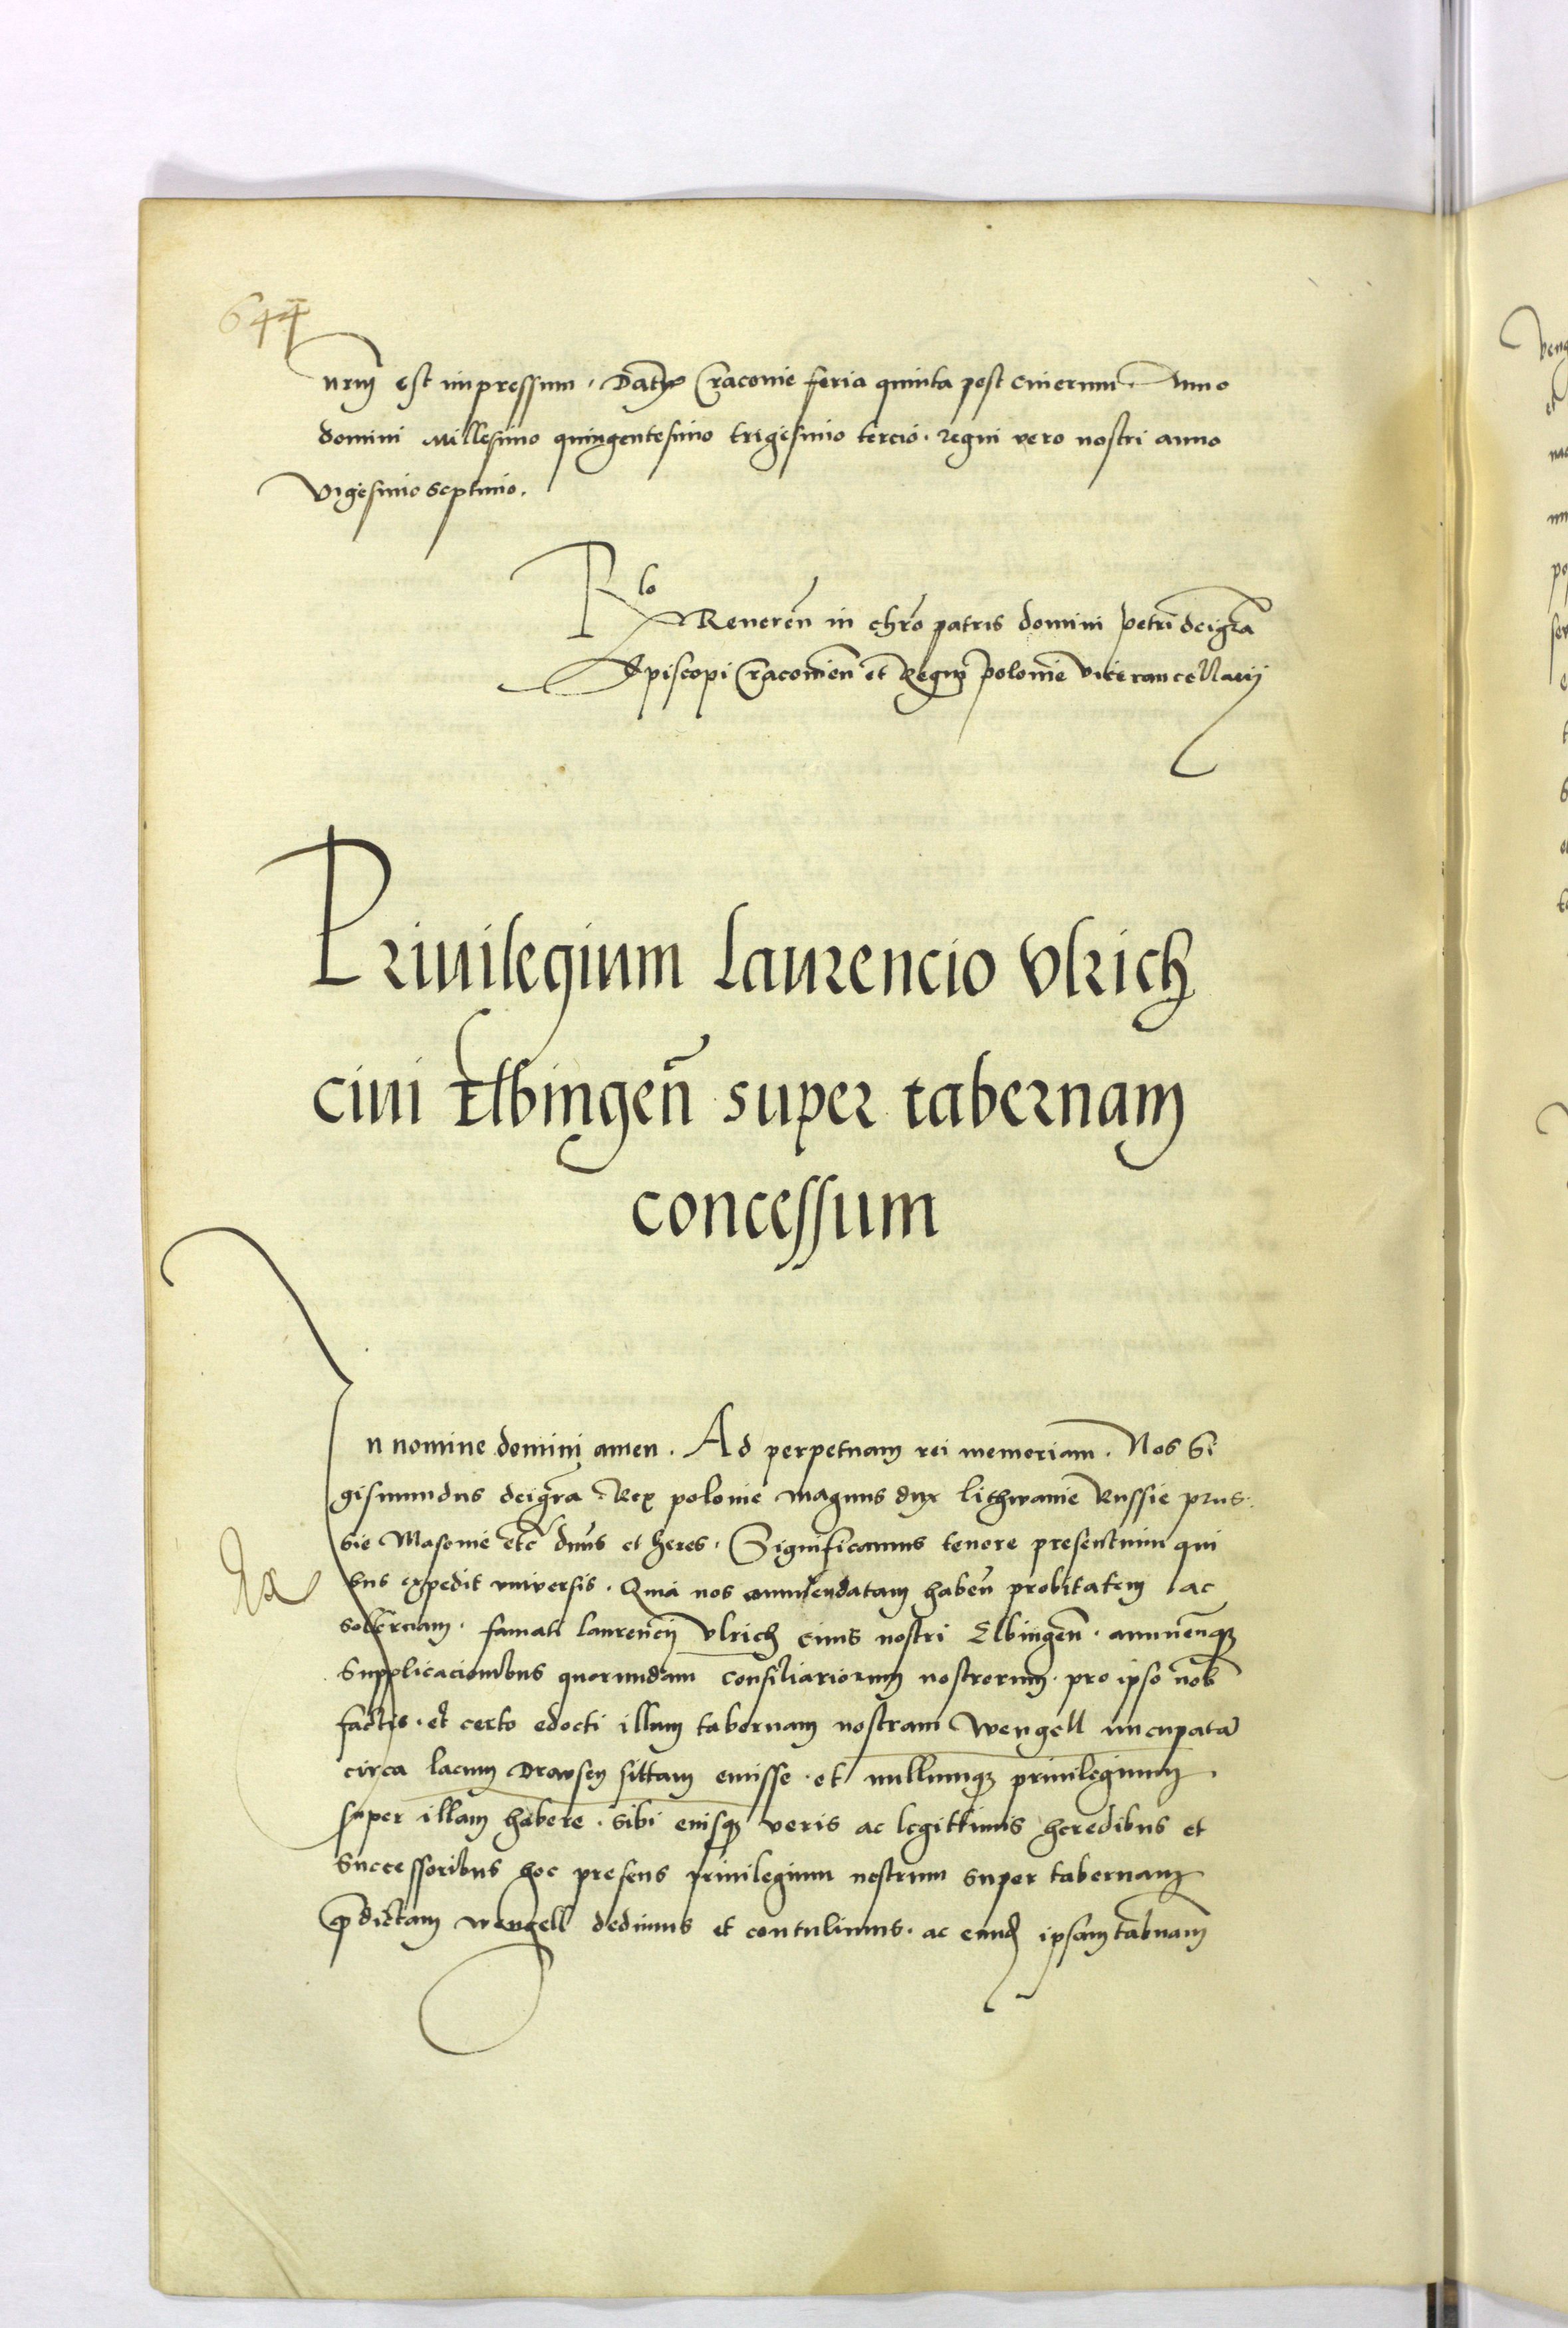 644
nrm̄ est impressum . Datꝭ Cracovie feria quinta post Cinerum . Anno
domini Millesimo quingentesimo trigesimo tercio . regni vero nostri anno
Vigesimo septimo .
Rlo
Reveren̄ in chr̄o patris domini petri dei gr̄a
Episcopi Cracovien̄ et Regni polonie vicecancellarij
Privilegium Laurencio Vlrich
civi Elbingen̄ super tabernam
concessum
In nomine domini amen . Ad perpetuam rei memoriam . Nos Si
gismundus dei gr̄a Rex polonie magnus dux lithwanie Russie prus
sie Masovie etc̄ dn̄us et heres . Significamus tenore presentium qui
bus expedit vniversis . Quia nos commendatam haben̄ probitatem ac
solerciam . famati laurencij Vlrich civis nostri Elbingen̄ . annuen̄qꝫ
Supplicacionibus quorundam Consiliariorum nostrorum . pro ipso nob̄
factis . et certo edocti illum tabernam nostram Wengell nuncupatā
circa lacum Drawsen sittam emisse . et nullumqꝫ privilegium
super illam habere . sibi eiusqꝫ veris ac legittimis heredibus et
Successoribus hoc presens privilegium nostrum super tabernam
p̄dictam wengell dedimus et contulimus . ac eand̄ ipsam tabn̄am